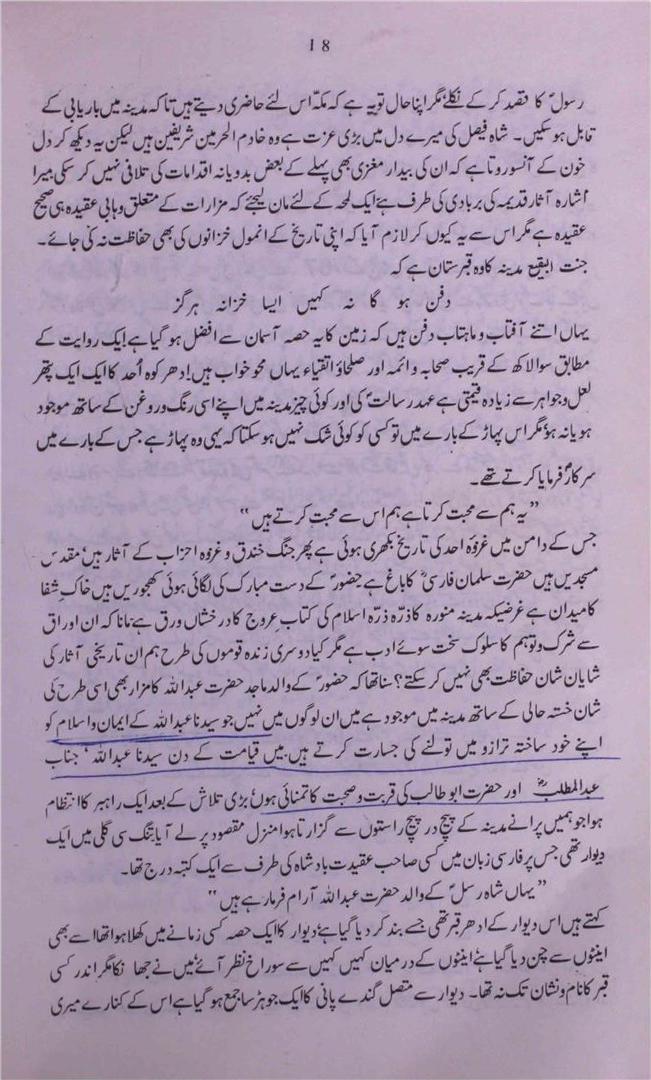 18
رسولؐ کا قصد کر کے نکلے، مگر اپنا حال تو یہ ہے کہ مکہ اس لئے حاضری دیتے ہیں تاکہ مدینہ میں باریابی کے
قابل ہو سکیں۔ شاہ فیصل کی میرے دل میں بڑی عزت ہے وہ خادم الحرمین شریفین ہیں لیکن یہ دیکھ کر دل
خون کے آنسو روتا ہے کہ ان کی بیدار مغزی بھی پہلے کے بعض بدویانہ اقدامات کی تلافی نہیں کر سکی میرا
اشارہ آثار قدیمہ کی بربادی کی طرف ہے، ایک لمحہ کے لئے مان لیجئے کہ مزارات کے متعلق وہابی عقیدہ ہی صحیح
عقیدہ ہے مگر اس سے یہ کیوں کر لازم آیا کہ اپنی تاریخ کے انمول خزانوں کی بھی حفاظت نہ کی جائے۔
جنت البقیع مدینہ کا وہ قبرستان ہے کہ
دفن ہو گا نہ کہیں ایسا خزانہ ہرگز
یہاں اتنے آفتاب و ماہتاب دفن ہیں کہ زمین کا یہ حصہ آسمان سے افضل ہو گیا ہے ایک روایت کے
مطابق سوا لاکھ کے قریب صحابہ و ائمہ اور صلحاؤ اتقیاء یہاں محو خواب ہیں! ادھر کوہ اُحد کا ایک ایک پتھر
لعل و جواہر سے زیادہ قیمتی ہے عہد رسالتؐ کی اور کوئی چیز مدینہ میں اپنے اسی رنگ و روغن کے ساتھ موجود
ہو یا نہ ہو، مگر اس پہاڑ کے بارے میں تو کسی کو کوئی شک نہیں ہو سکتا کہ یہی وہ پہاڑ ہے جس کے بارے میں
سرکارؐ فرمایا کرتے تھے۔
”یہ ہم سے محبت کرتا ہے ہم اس سے محبت کرتے ہیں“
جس کے دامن میں غزوۂ احد کی تاریخ بکھری ہوئی ہے پھر جنگ خندق و غزوہ احزاب کے آثار ہیں، مقدس
مسجدیں ہیں حضرت سلمان فارسیؓ کا باغ ہے حضورؐ کے دست مبارک کی لگائی ہوئی کھجوریں ہیں خاکِ شفا
کا میدان ہے غرضیکہ مدینہ منورہ کا ذرّہ ذرّہ اسلام کی کتابِ عروج کا درخشاں ورق ہے، مانا کہ ان اوراق
سے شرک و توہم کا سلوک سخت سوئے ادب ہے مگر کیا دوسری زندہ قوموں کی طرح ہم ان تاریخی آثار کی
شایان شان حفاظت بھی نہیں کر سکتے؟ سنا تھا کہ حضورؐ کے والد ماجد حضرت عبداللہ کا مزار بھی اسی طرح کی
شان خستہ حالی کے ساتھ مدینہ میں موجود ہے میں ان لوگوں میں نہیں جو سیدنا عبداللہ کے ایمان و اسلام کو
اپنے خود ساختہ ترازو میں تولنے کی جسارت کرتے ہیں. میں قیامت کے دن سیدنا عبداللہ، جناب
عبدالمطلبؓ اور حضرت ابو طالب کی قربت و صحبت کا تمنائی ہوں، بڑی تلاش کے بعد ایک راہبر کا انتظام
ہوا جو ہمیں پرانے مدینہ کے پیچ در پیچ راستوں سے گزارتا ہوا منزل مقصود پر لے آیا، تنگ سی گلی میں ایک
دیوار تھی جس پر فارسی زبان میں کسی صاحب عقیدت بادشاہ کی طرف سے ایک کتبہ درج تھا۔
”یہاں شاہ رسلؐ کے والد حضرت عبداللہ آرام فرما رہے ہیں“
کہتے ہیں اس دیوار کے ادھر قبر تھی جسے بند کر دیا گیا ہے، دیوار کا ایک حصہ کسی زمانے میں کھلا ہوا تھا اسے بھی
اینٹوں سے چن دیا گیا ہے اینٹوں کے درمیان کہیں کہیں سے سوراخ نظر آئے، میں نے جھانکا مگر اندر کسی
قبر کا نام و نشان تک نہ تھا۔ دیوار سے متصل گندے پانی کا ایک جوہڑ سا جمع ہو گیا ہے اس کے کنارے میری